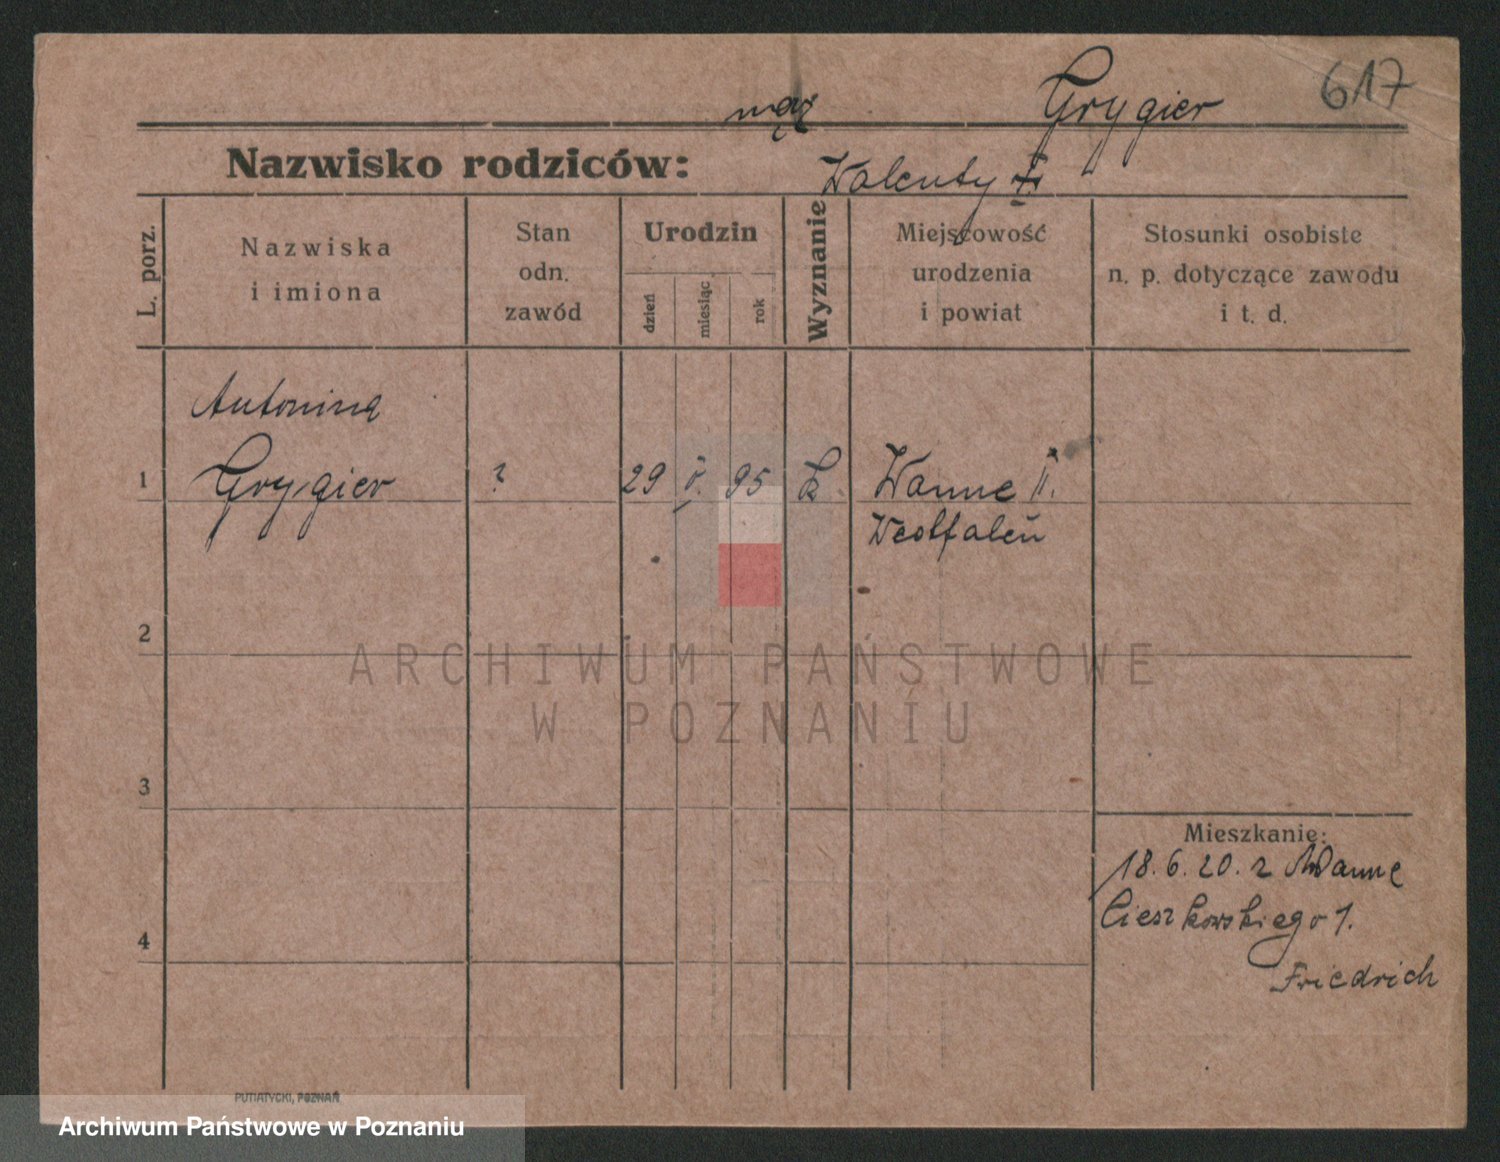 617
mąż Grygier
Nazwisko rodziców: Walenty
L. porz.
Nazwiska
i imiona
Stan
odn.
zawód
Urodzin
dzień
miesiąc
rok
Wyznanie
Miejscowość
urodzenia
i powiat
Stosunki osobiste
n. p. dotyczące zawodu
i t. d.
Antonina
1 Grygier ? 29 V. 95 k. Wanne II.
Westfalen
2
ARCHIWUM PAŃSTWOWE
W POZNANIU
3
Mieszkanie:
18.6.20. z Wanne
Cieszkowskiego 1.
4
Friedrich
PUTIATYCKI, POZNAŃ
Archiwum Państwowe w Poznaniu